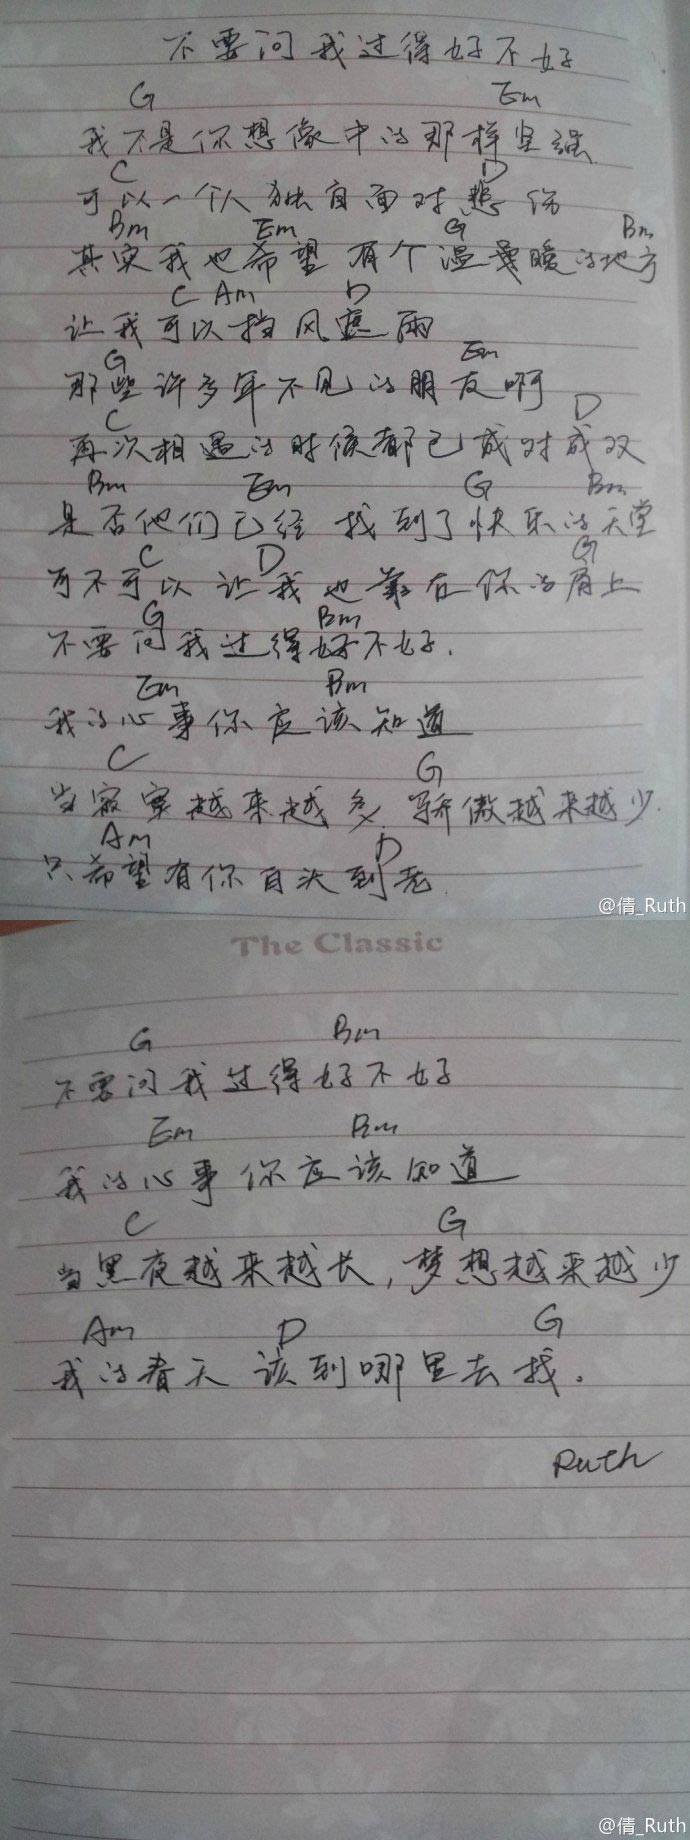 不要问我过得好不好
G Em
我不是你想像中的那样坚强
C D
可以一个人独自面对悲伤
Bm Em G Bm
其实我也希望有个温暖的地方
C Am D
让我可以挡风遮雨
G Em
那些许多年不见的朋友啊
C D
再次相遇的时候都已成对成双
Bm Em G Bm
是否他们已经找到了快乐的天堂
C D G
可不可以让我也靠在你的肩上
G Bm
不要问我过得好不好.
Em Bm
我的心事你应该知道
C G
当寂寞越来越多,骄傲越来越少.
Am D
只希望有你白头到老.
@倩_Ruth
The Classic
G Bm
不要问我过得好不好
Em Bm
我的心事你应该知道
C G
当黑夜越来越长,梦想越来越少
Am D G
我的春天该到哪里去找。
Ruth
@倩_Ruth